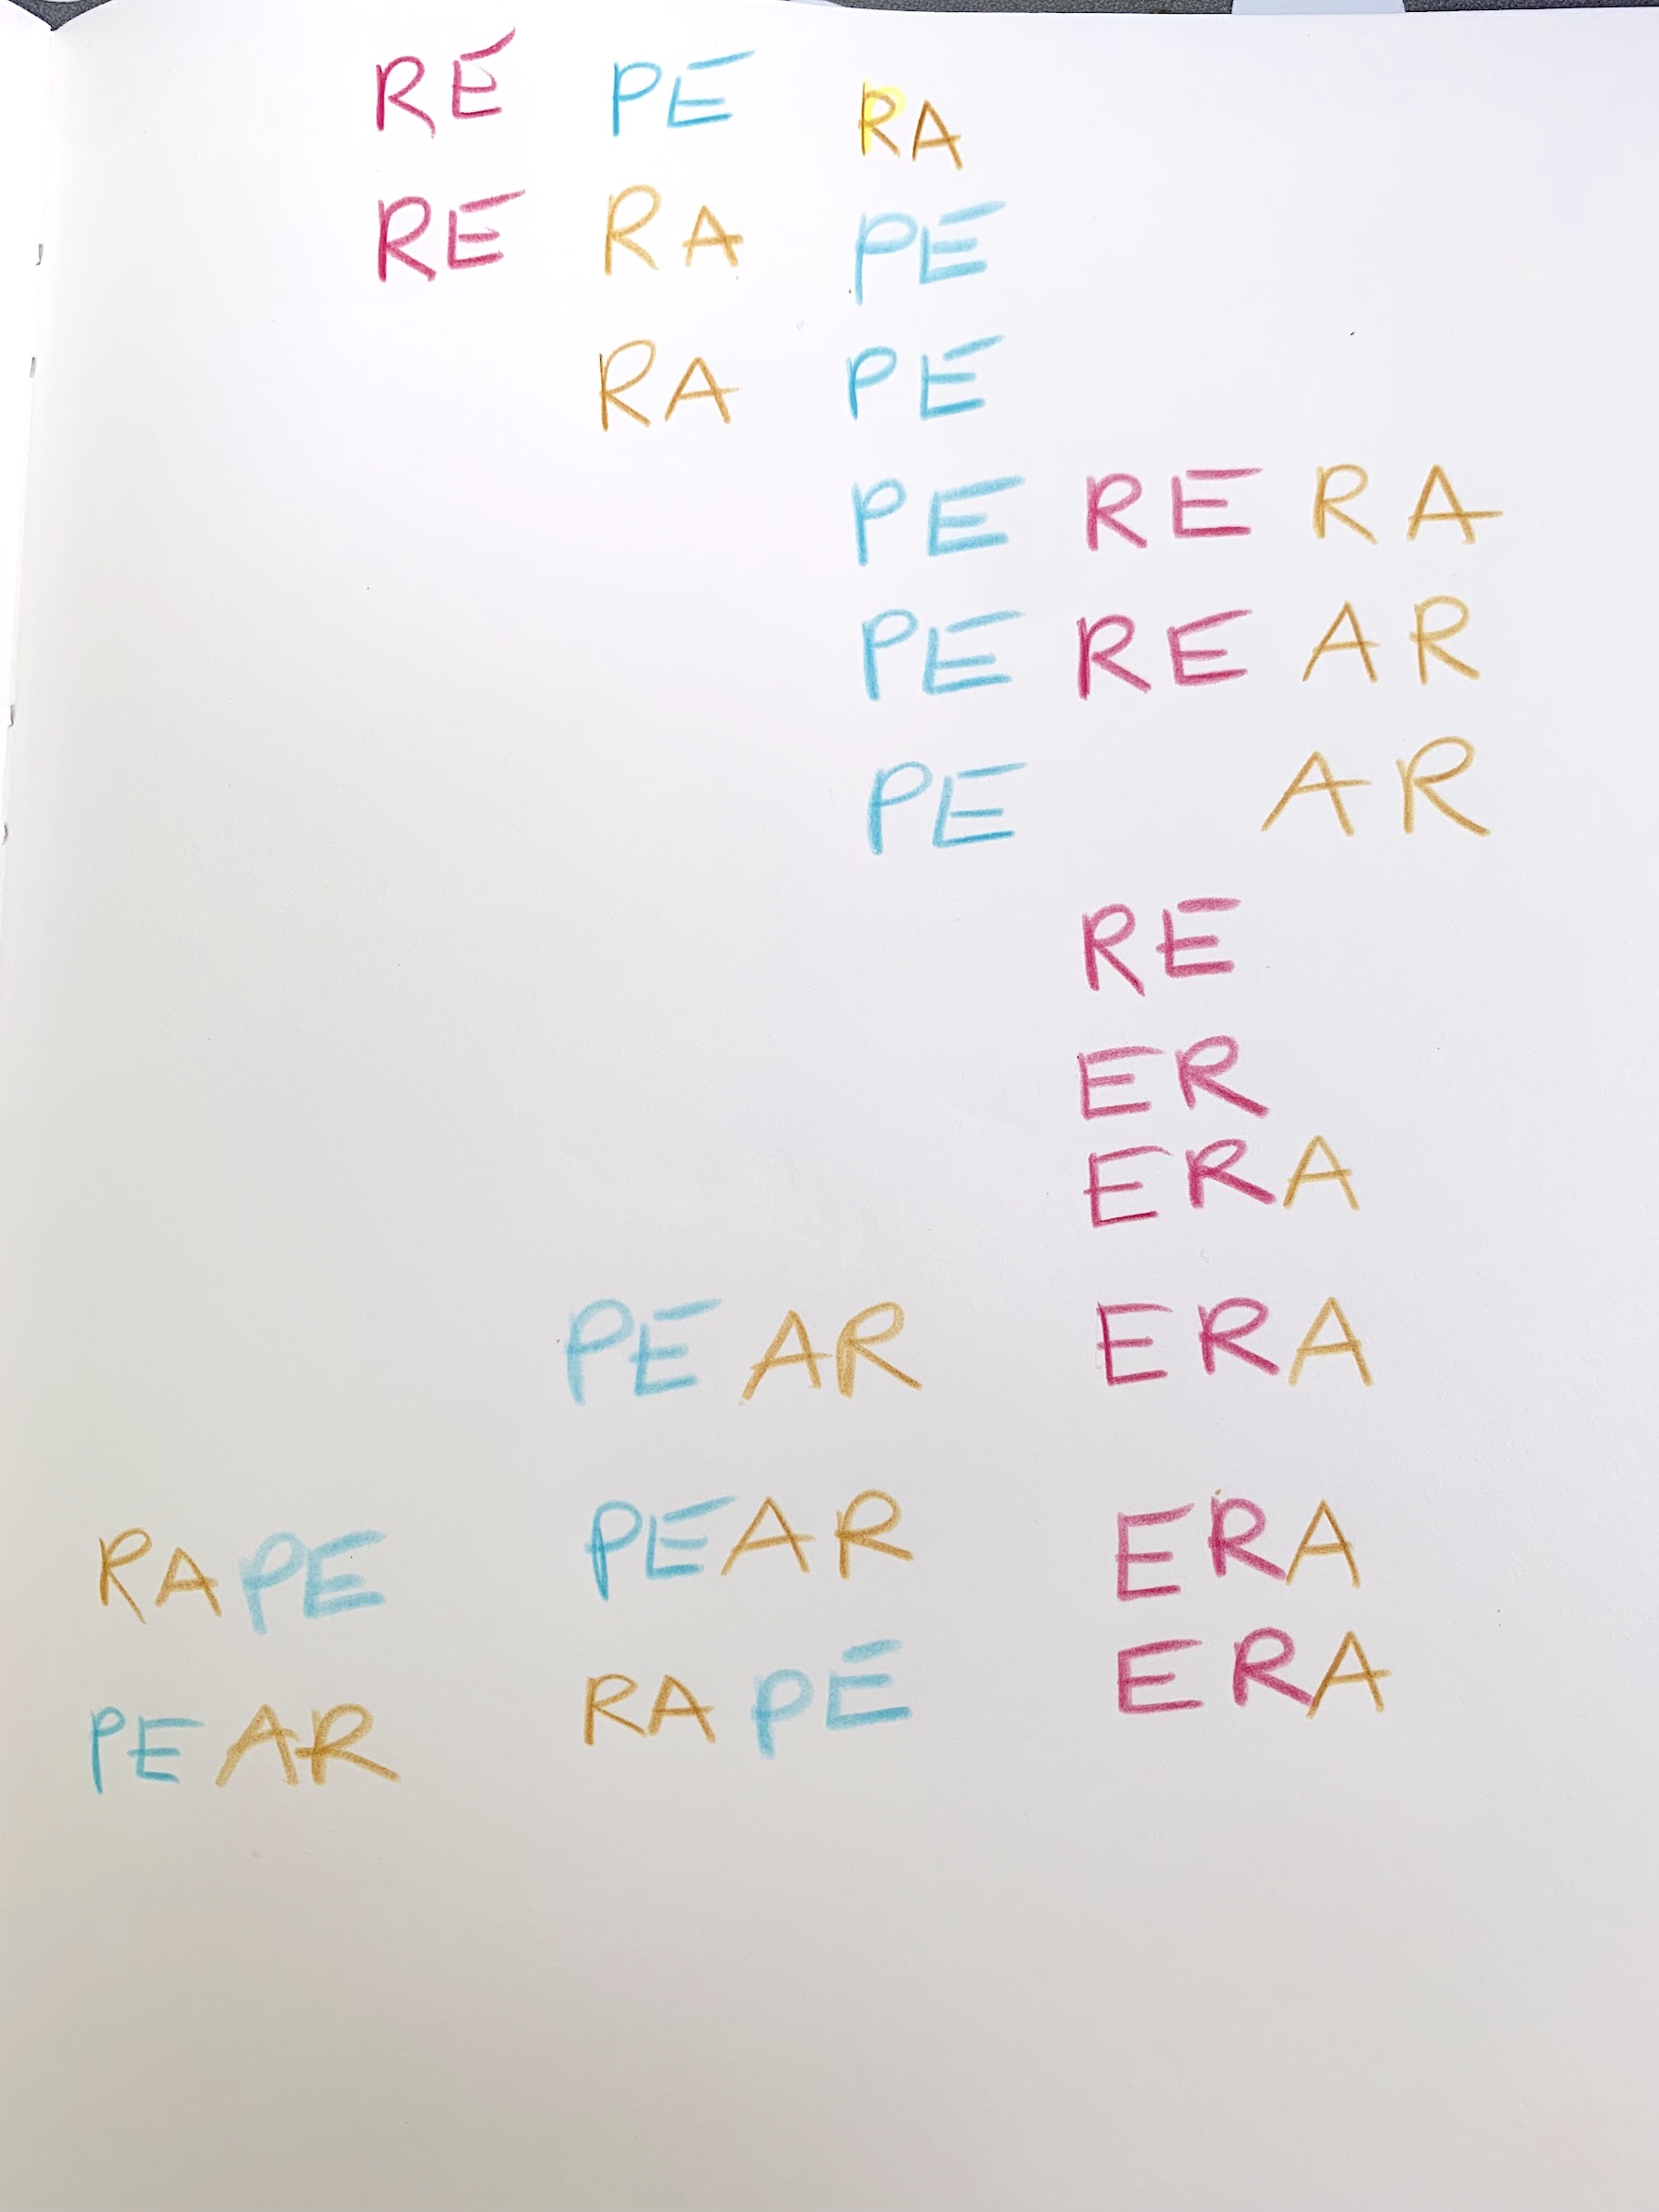 RE PE RA
RE RA PE
RA PE
PE RE RA
PE RE AR
PE AR
RE
ER
ERA
PEAR ERA
RAPE PEAR ERA
PEAR RAPE ERA